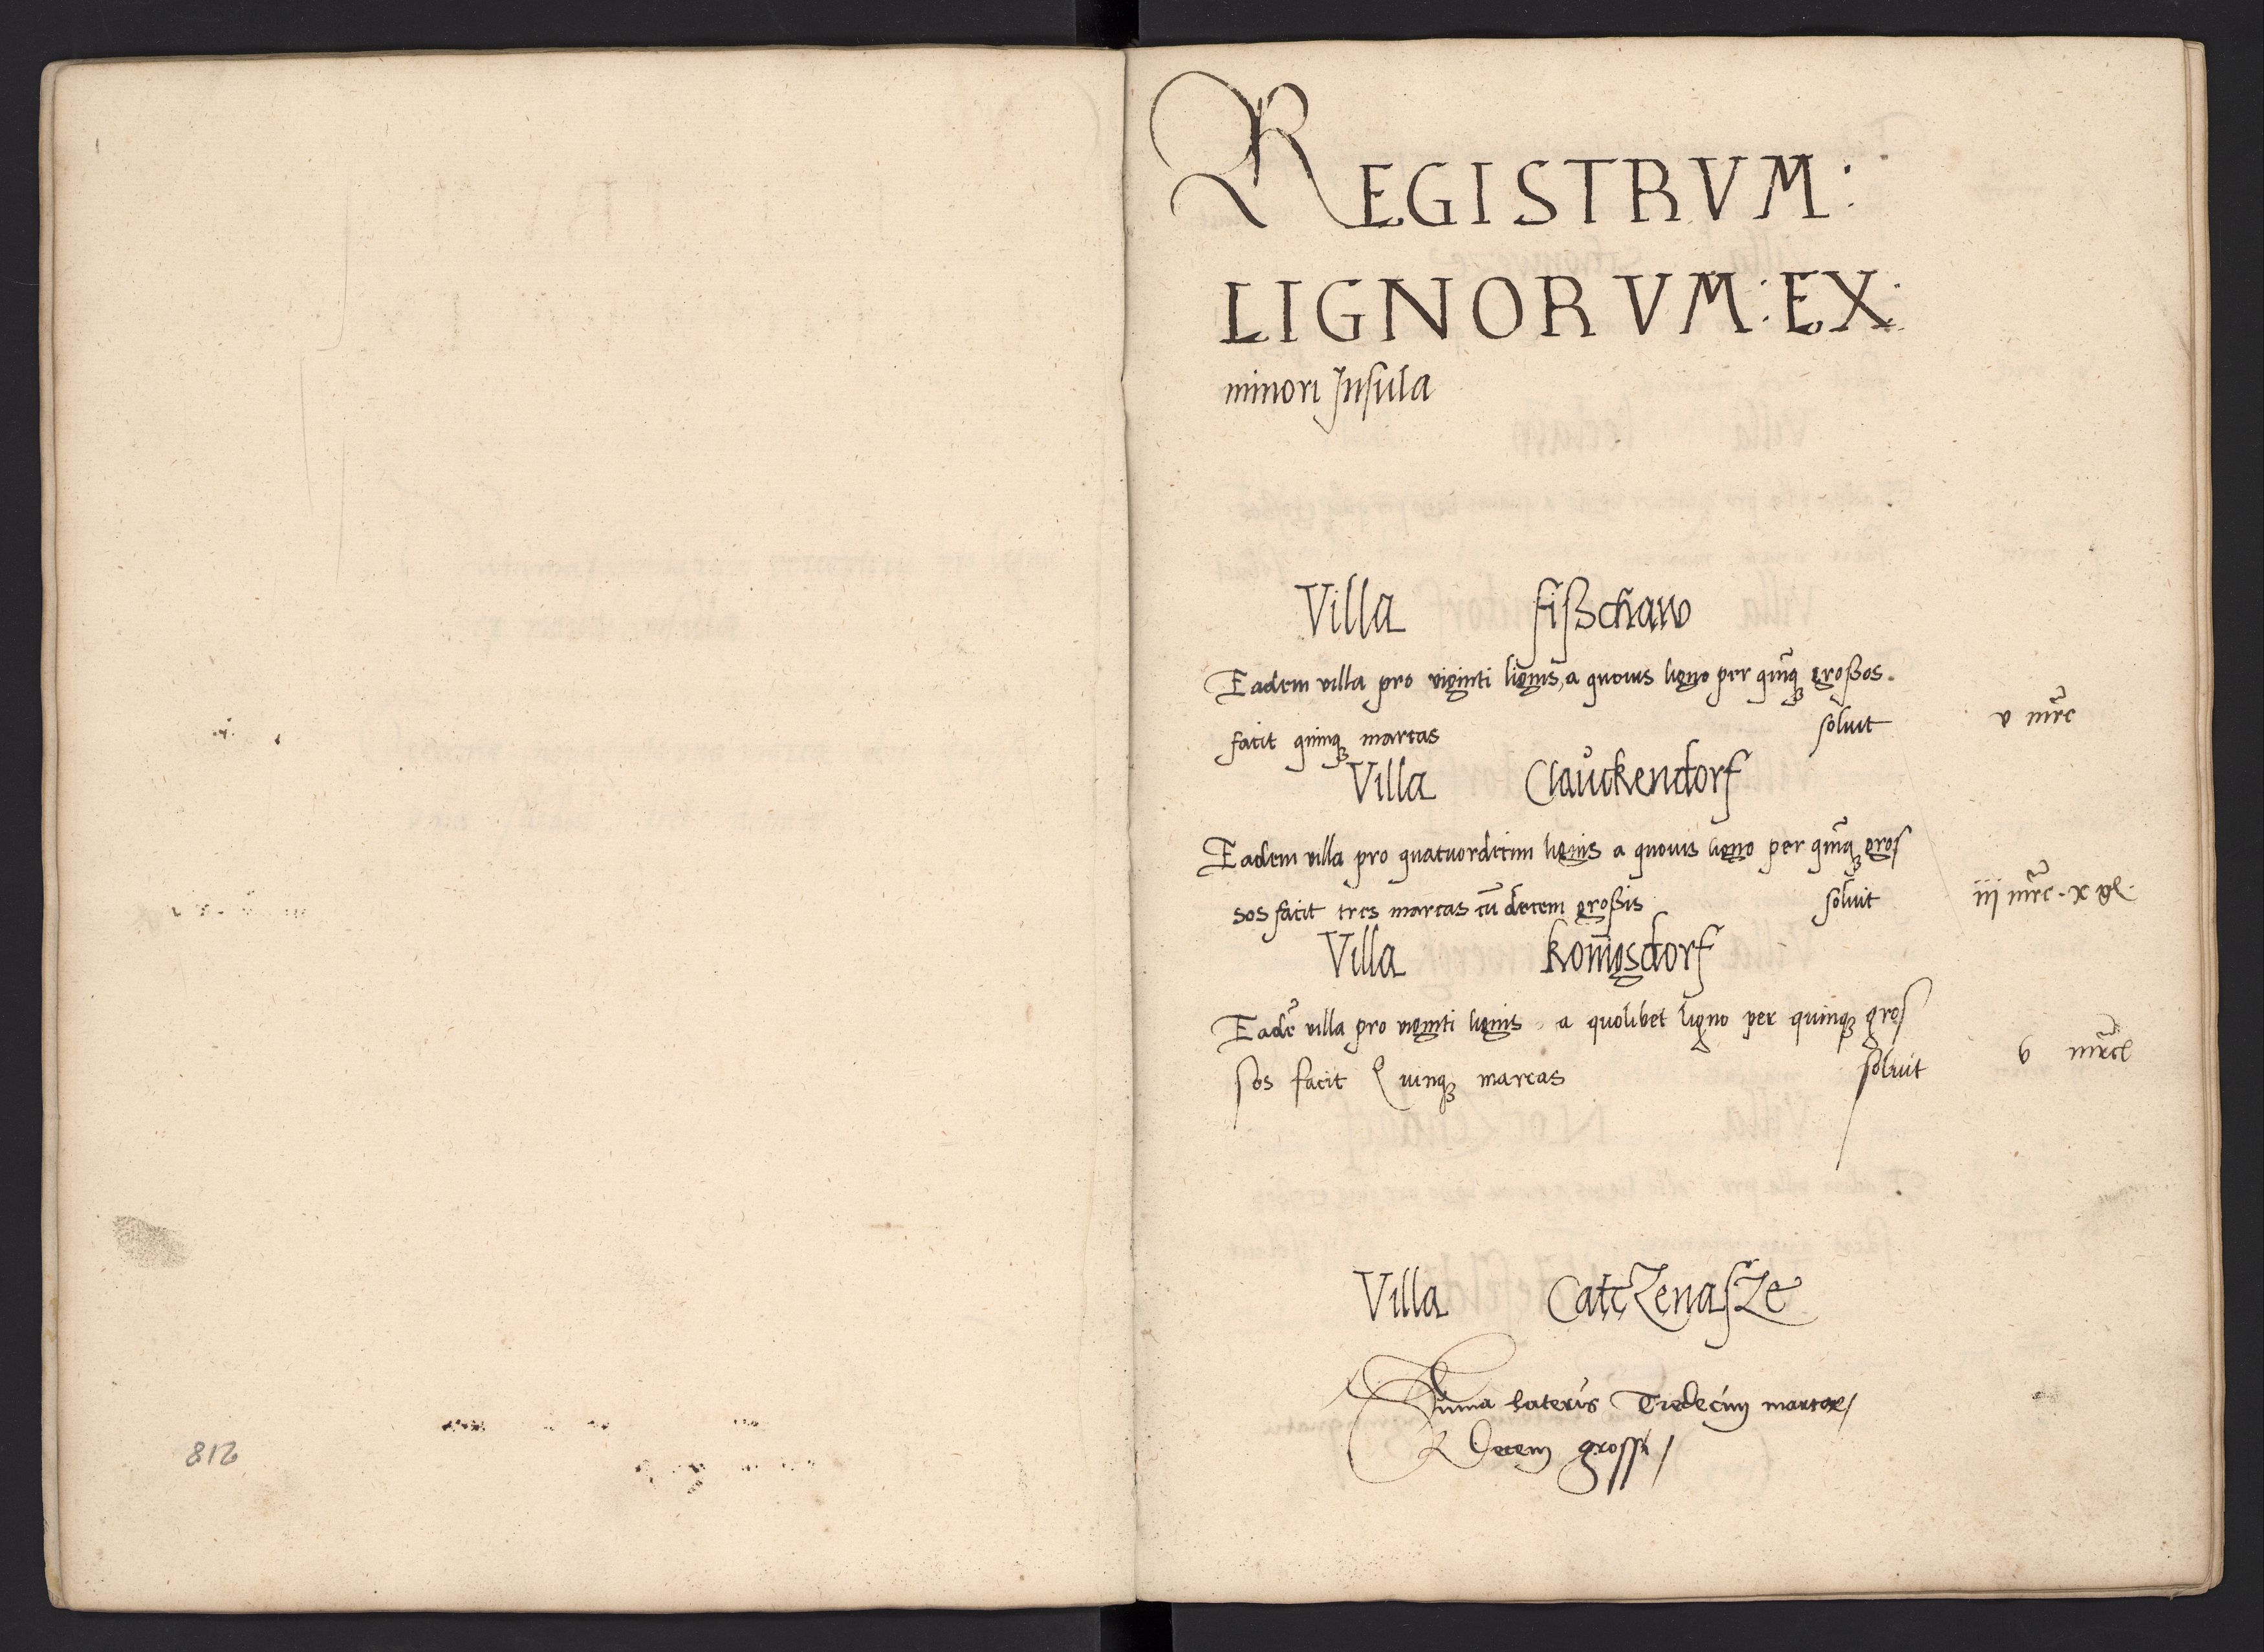 812
REGISTRVM:
LIGNORVM: EX:
minori Insula
Villa fißchaw
Eadem villa pro viginti lignis, a quouis ligno per quīq₃ großos.
facit quinq₃ marcas soluit v mrc
Villa Clauckendorf
Eadem villa pro quatuordecim lignis a quouis ligno per quīq₃ gros
sos facit tres marcas cū decem großis soluit iij mrc. x gl.
Villa konigsdorf
Eadē villa pro viginti lignis a quolibet ligno per quinq₃ gros
sos facit Quinq₃ marcas soluit v mrcl
Villa CatcZenasZe
Suma Lateris Tredecim marcae/
Decem grossi/